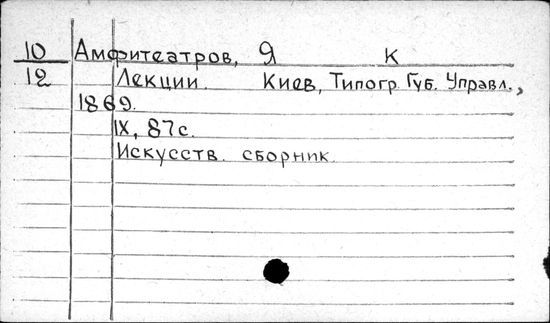 10 Амфитеатров, Я К
12 Лекции. Киев, Типогр. Губ. Управл.,
1869.
IX, 87с.
Искусств. сборник.